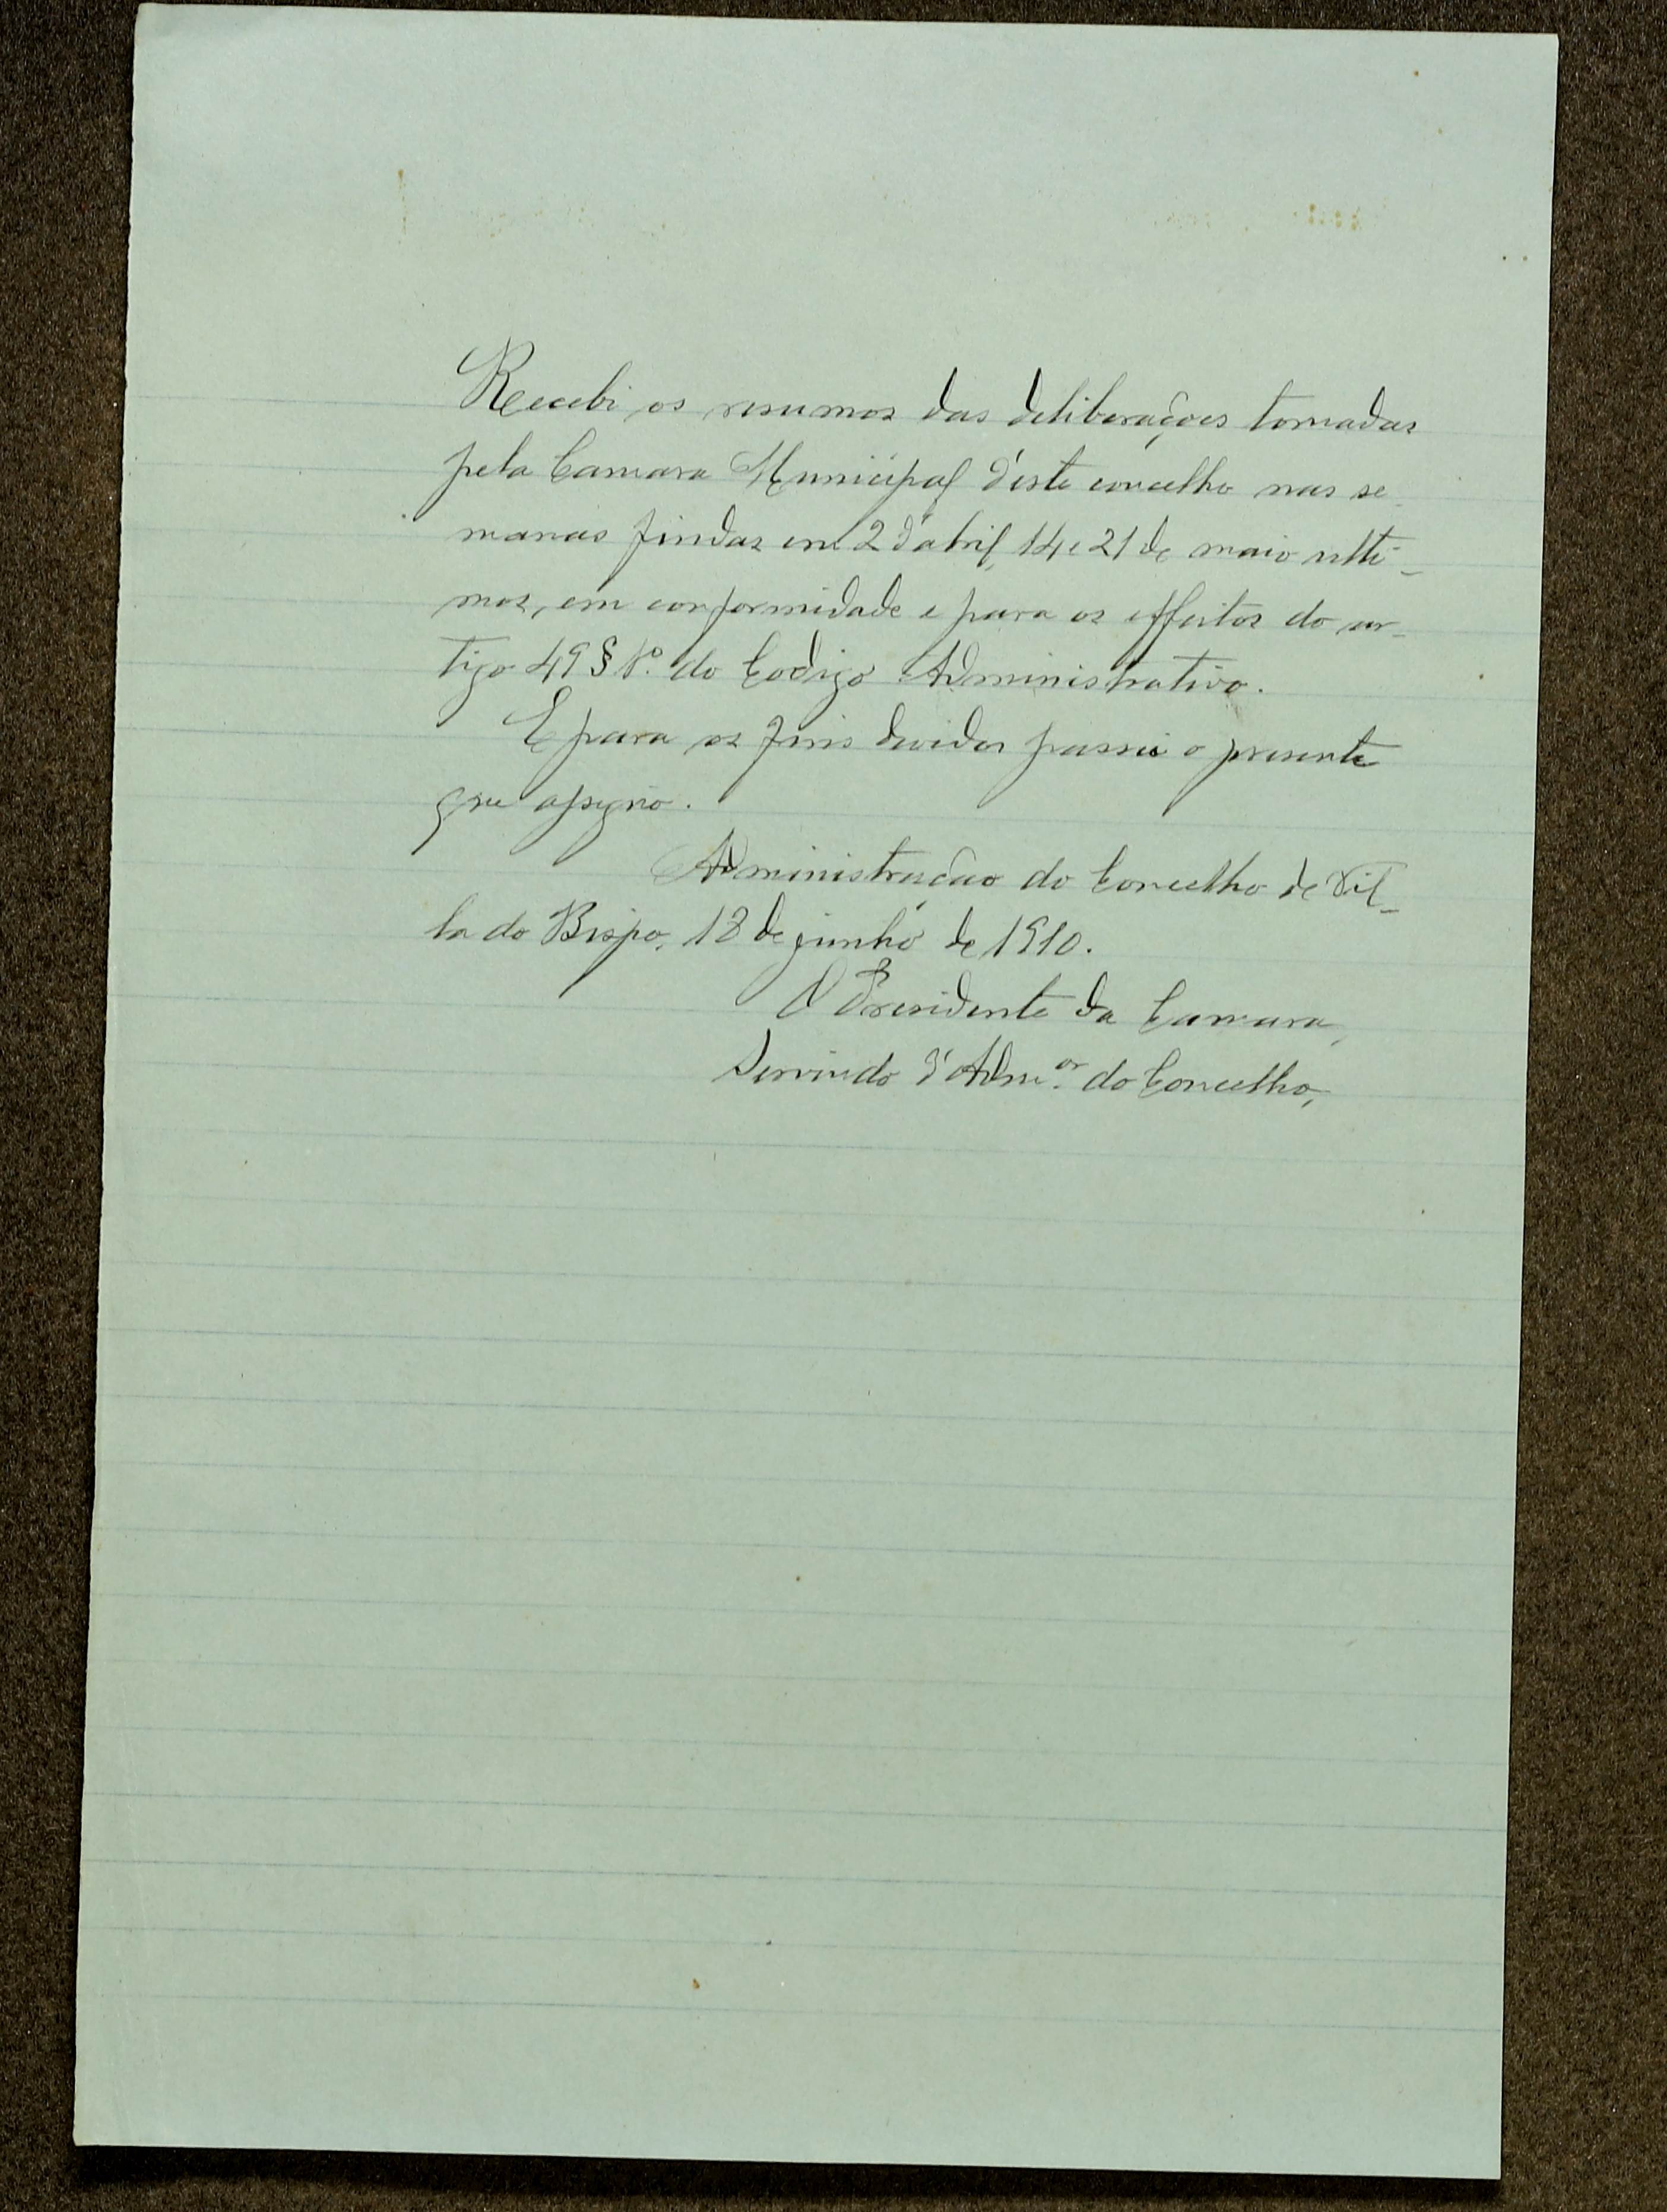 Recebi os resumos das deliberações tomadas
pela Camara Municipal d'este concelho nas se-
manas findas em 2 d'abril, 14 e 21 de maio ulti-
mos, em conformidade e para os effeitos do ar-
tigo 49 § 1º. do Codigo Administrativo.
E para os fins devidos passei o presente
que assigno.
Administração do Concelho de Vil-
la do Bispo, 18 de junho de 1910.
O Presidente da Camara,
Servindo d'Adm.or do Concelho,